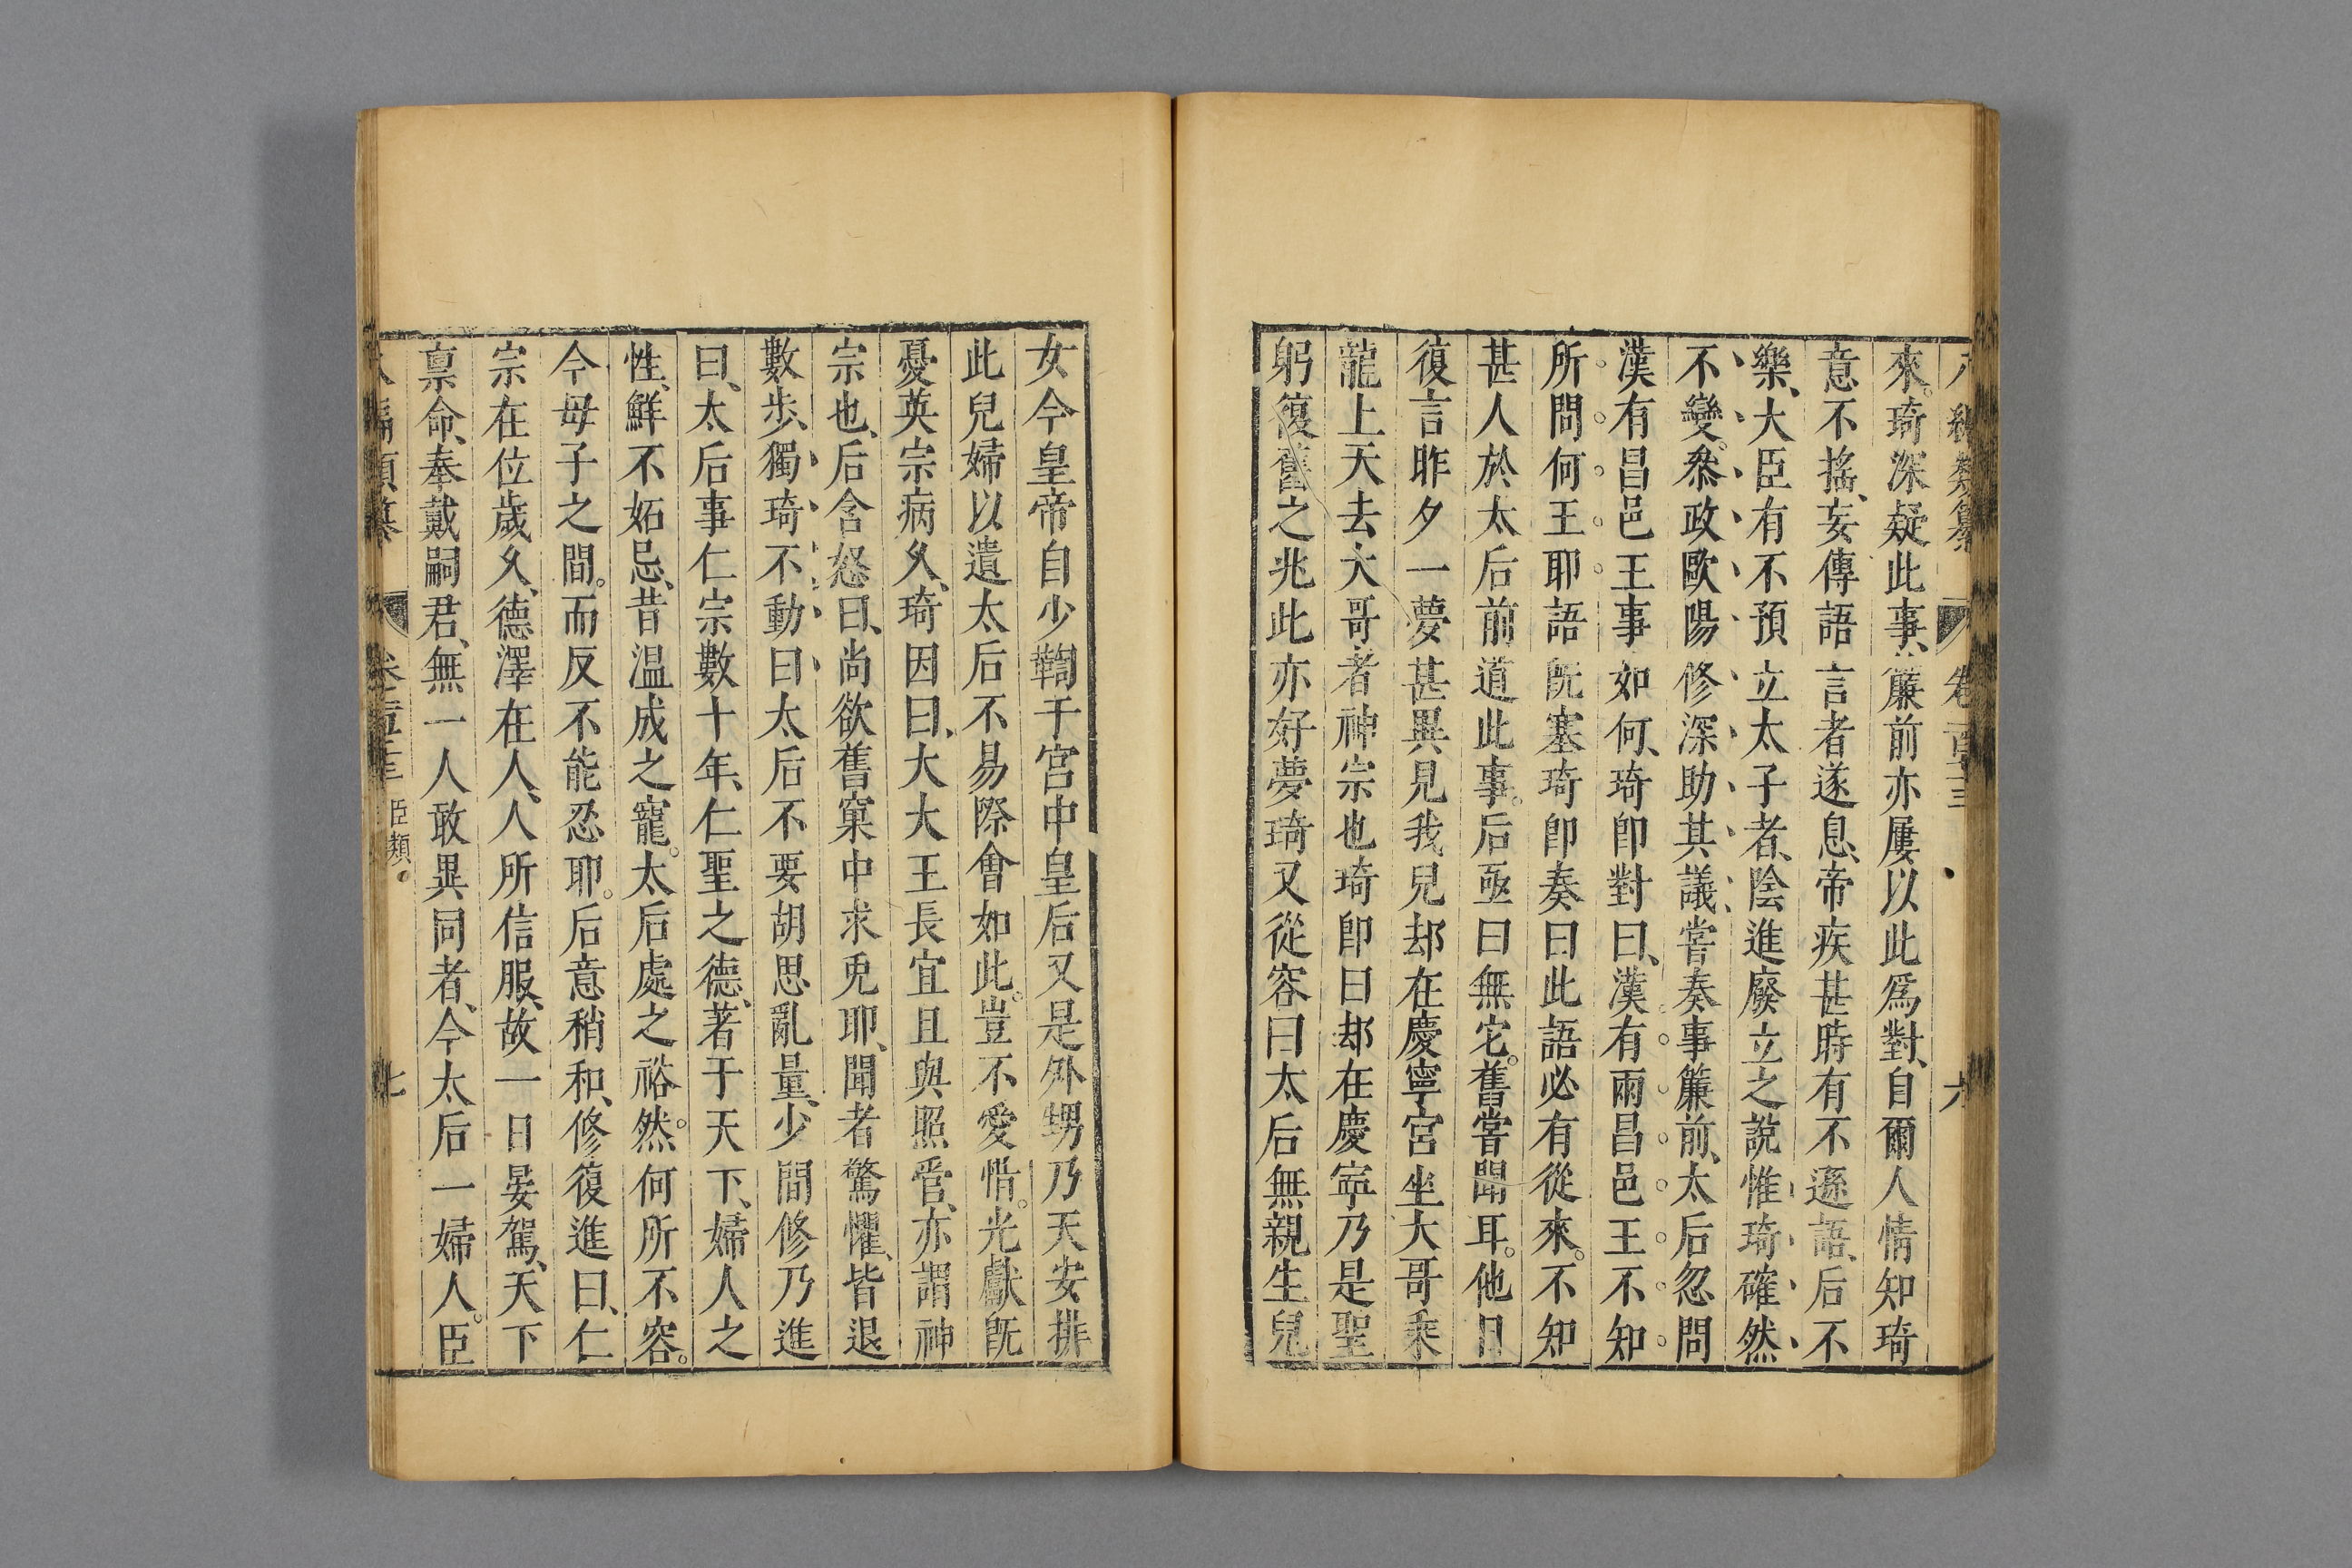 來。琦深疑此事、簾前亦屢以此爲對、自爾人情知琦
意不搖、妄傳語言者遂息、帝疾甚時有不遜語、后不
樂、大臣有不預立太子者、陰進廢立之說惟琦確然
不變。叅政歐陽修深助其議、嘗奏事簾前、太后忽問
漢有昌邑王事如何、琦卽對曰、漢有兩昌邑王不知
所問何王耶語旣塞琦卽奏曰此語必有從來。不知
甚人於太后前道此事。后亟曰無它。舊嘗聞耳。他日
復言昨夕一夢甚異見我兒却在慶寧宮坐大哥乘
龍上天去大哥者神宗也琦卽曰却在慶寧乃是聖
躬復舊之兆此亦好夢琦又從容曰太后無親生兒
女今皇帝自少鞫于宮中皇后又是外甥乃天安排
此兒婦以遺太后不易際會如此。豈不愛惜。光獻旣
憂英宗病久、琦因曰、大大王長宜且與照管、亦謂神
宗也、后含怒曰、尚欲舊窠中求兎耶、聞者驚懼、皆退
數步、獨琦不動曰太后不要胡思亂量、少間修乃進
曰、太后事仁宗數十年、仁聖之德、著于天下、婦人之
性、鮮不妬忌、昔温成之寵。太后處之裕然。何所不容。
今母子之間。而反不能忍耶。后意稍和、修復進曰、仁
宗在位歲久、德澤在人、人所信服、故一日晏駕、天下
禀命、奉戴嗣君、無一人敢異同者、今太后一婦人。臣